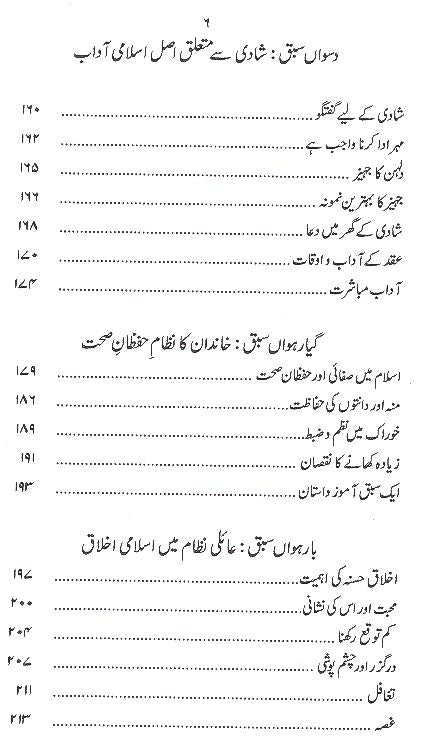 ۶
دسواں سبق : شادی سے متعلق اصل اسلامی آداب
شادی کے لیے گفتگو ........ ۱۶۰
مہر ادا کرنا واجب ہے ........ ۱۶۲
دلہن کا جہیز ........ ۱۶۵
جہیز کا بہترین نمونہ ........ ۱۶۶
شادی کے گھر میں دعا ........ ۱۶۸
عقد کے آداب و اوقات ........ ۱۷۰
آداب مباشرت ........ ۱۷۴
گیارہواں سبق : خاندان کا نظامِ حفظانِ صحت
اسلام میں صفائی اور حفظان صحت ........ ۱۷۹
منہ اور دانتوں کی حفاظت ........ ۱۸۶
خوراک میں نظم و ضبط ........ ۱۸۹
زیادہ کھانے کا نقصان ........ ۱۹۱
ایک سبق آموز داستان ........ ۱۹۳
بارہواں سبق : عائلی نظام میں اسلامی اخلاق
اخلاق حسنہ کی اہمیت ........ ۱۹۷
محبت اور اس کی نشانی ........ ۲۰۰
کم توقع رکھنا ........ ۲۰۴
درگزر اور چشم پوشی ........ ۲۰۷
تغافل ........ ۲۱۱
غصہ ........ ۲۱۳